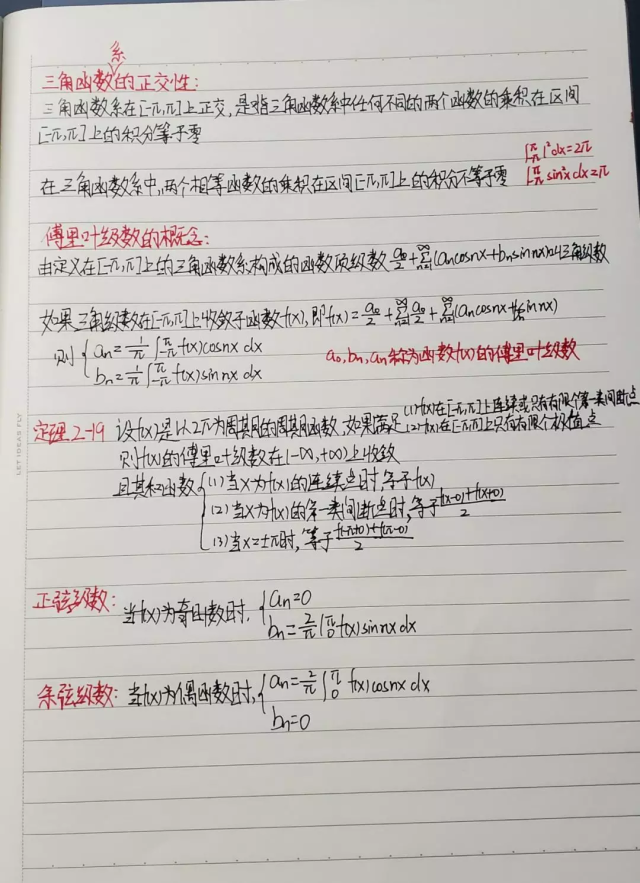 系
三角函数的正交性:
三角函数系在[-π,π]上正交,是指三角函数系中任何不同的两个函数的乘积在区间
[-π,π]上的积分等于零
∫_{-π}^{π} 1² dx=2π
在三角函数系中,两个相等函数的乘积在区间[-π,π]上的积分不等于零
∫_{-π}^{π} sin²x dx=π
傅里叶级数的概念:
由定义在[-π,π]上的三角函数系构成的函数项级数 a₀/2+∑_{n=1}^{∞}(aₙcosnx+bₙsinnx)叫三角级数
如果三角级数在[-π,π]上收敛于函数f(x),即f(x)=a₀/2+∑_{n=1}^{∞}a₀/2+∑_{n=1}^{∞}(aₙcosnx+bₙsinnx)
则{aₙ=1/π∫_{-π}^{π}f(x)cosnx dx
bₙ=1/π∫_{-π}^{π}f(x)sinnx dx
a₀,bₙ,aₙ称为函数f(x)的傅里叶级数
定理2-19 设f(x)是以2π为周期的周期函数,如果满足(1)f(x)在[-π,π]上连续或只有有限个第一类间断点
(2)f(x)在[-π,π]上只有有限个极值点
则f(x)的傅里叶级数在(-∞,+∞)上收敛
且其和函数{(1)当x为f(x)的连续点时,等于f(x)
(2)当x为f(x)的第一类间断点时,等于(f(x-0)+f(x+0))/2
(3)当x=±π时,等于(f(-π+0)+f(π-0))/2
正弦级数: 当f(x)为奇函数时,{aₙ=0
bₙ=2/π∫_{0}^{π}f(x)sinnx dx
余弦级数: 当f(x)为偶函数时,{aₙ=2/π∫_{0}^{π}f(x)cosnx dx
bₙ=0
LET IDEAS FLY